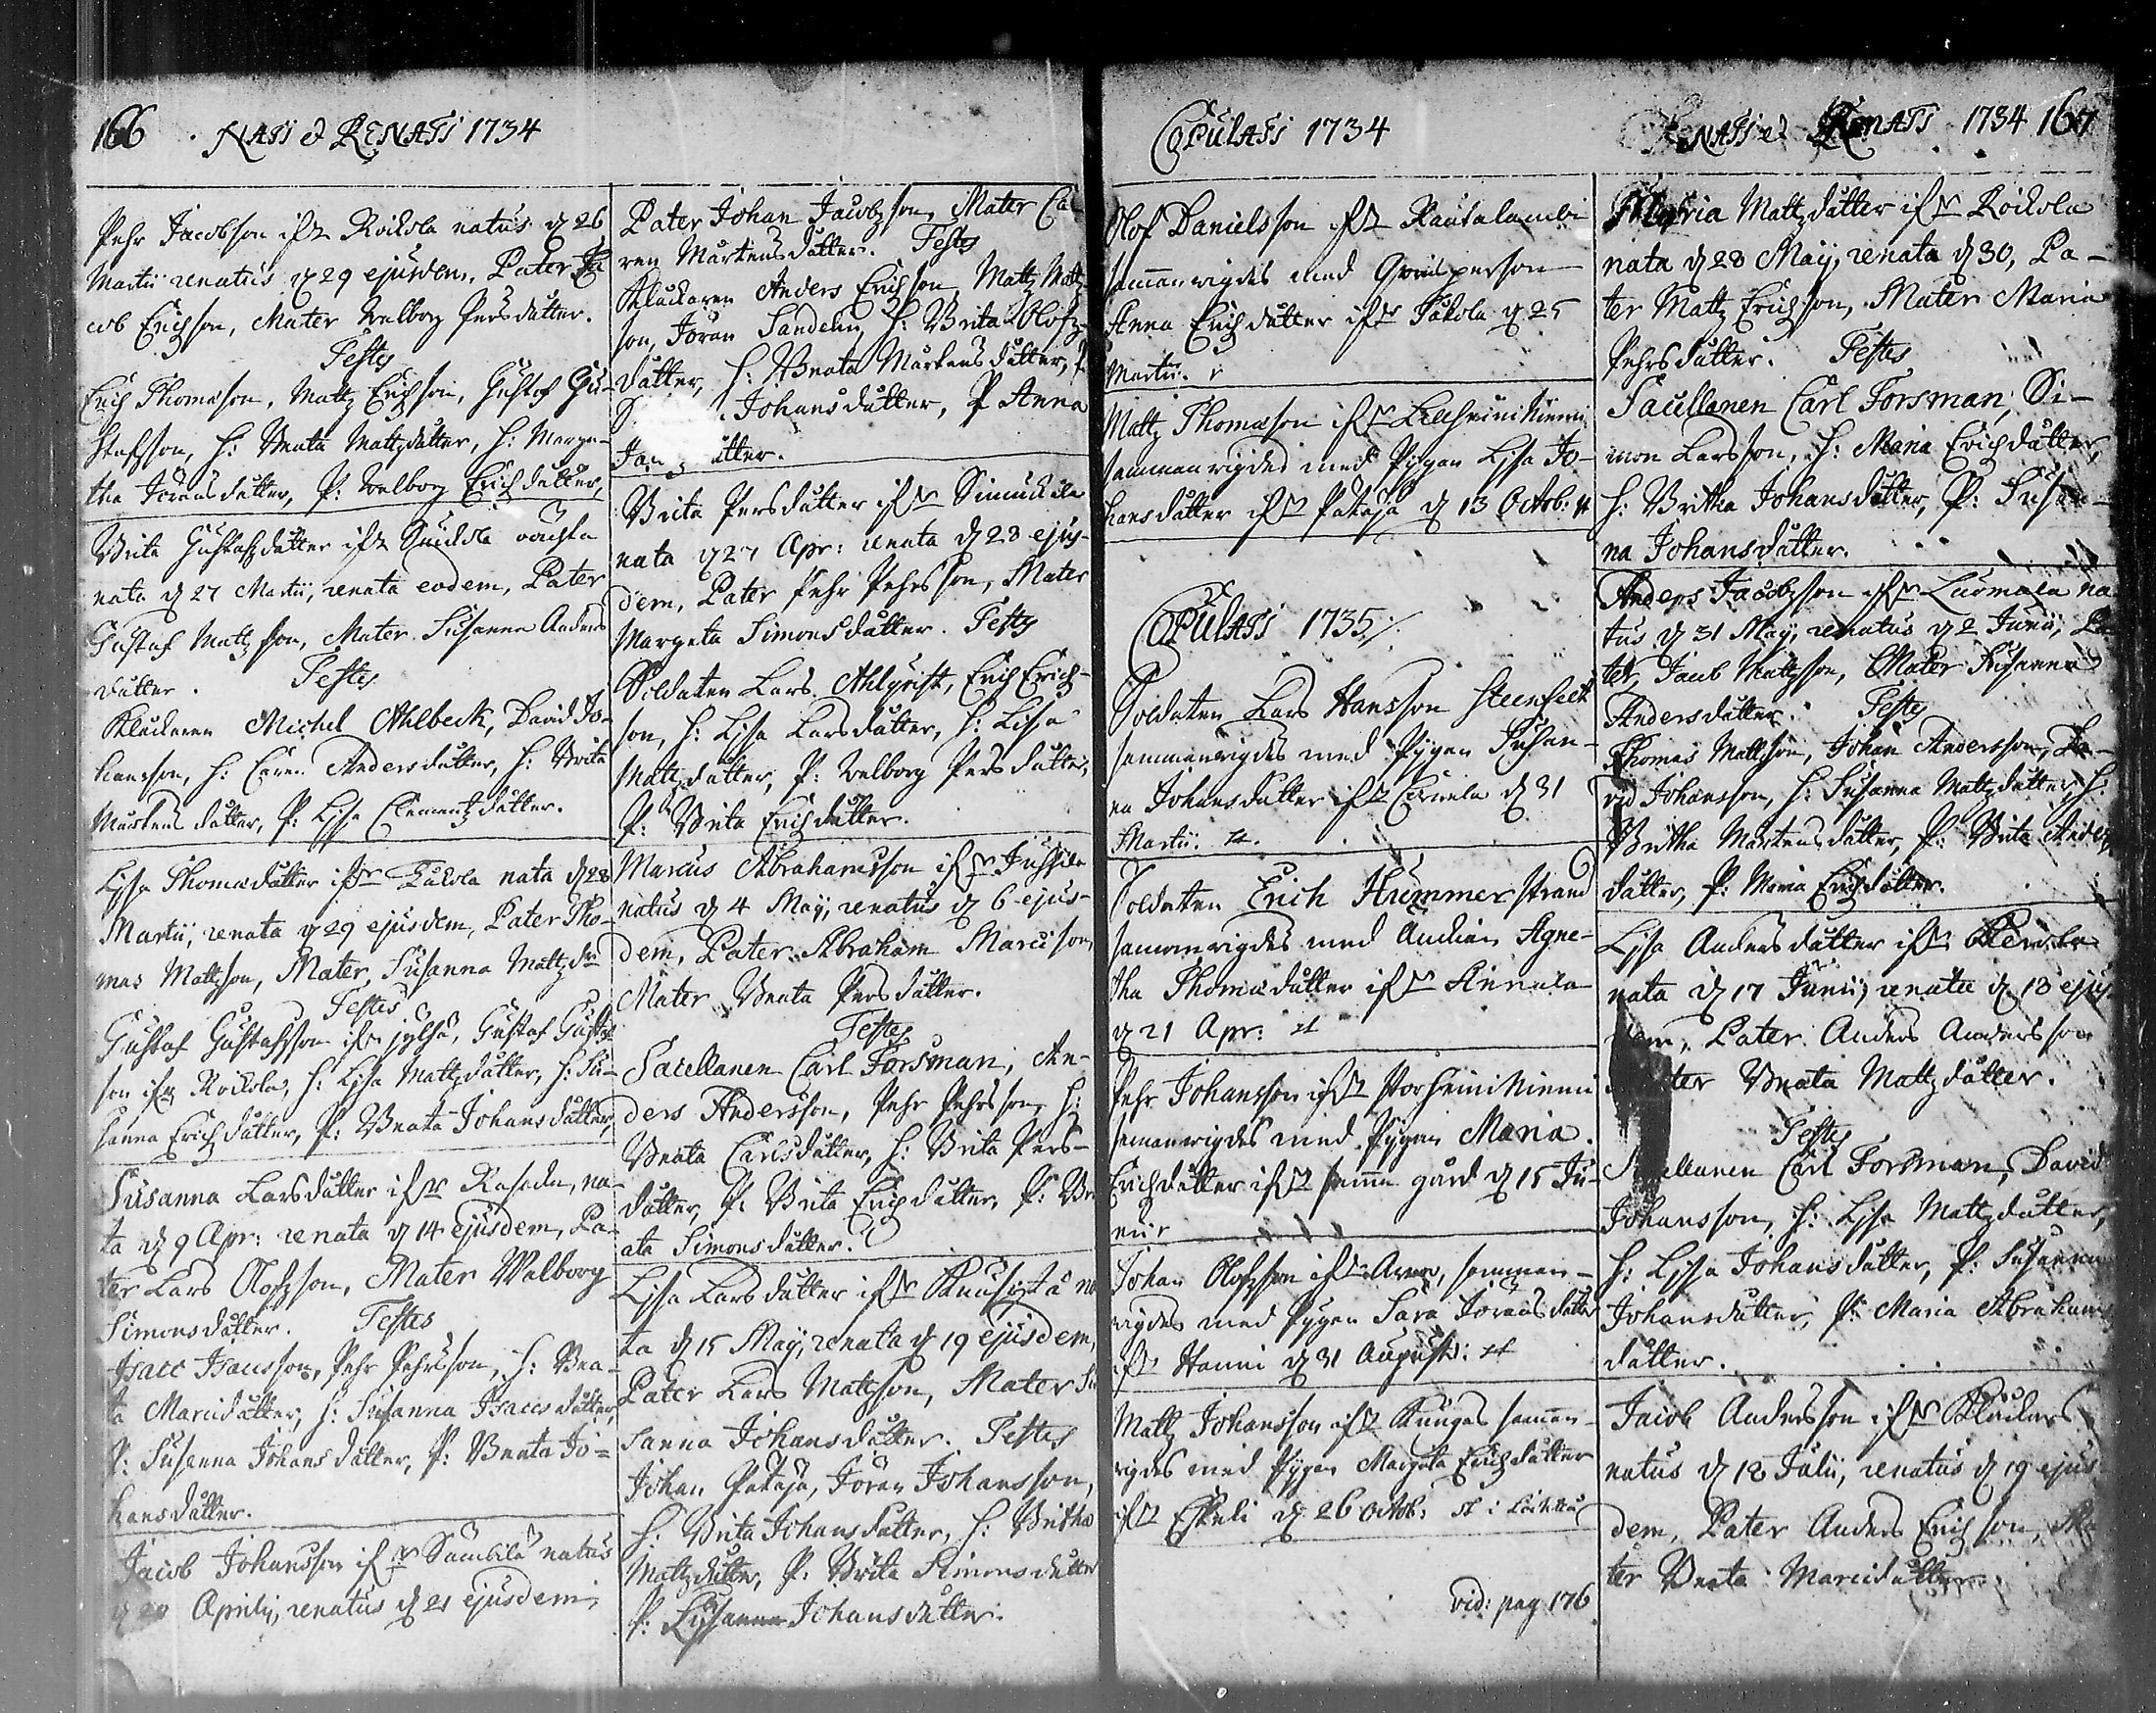 166 NATI & RENATI 1734
Pehr Jacobson ifr Koikola natus d 26
Martii renatus d 29 ejusdem, Pater Ja
cob Erichson, Mater Valborg Persdatter.
Testes
Erich Thomæson, Mattz Erichson, Gustaf Gu-
stafsson, H: Beata Mattzdatter, H: Marge-
tha Jöransdatter, P: Valborg Erichdatter,
Brita Gustafzdatter ifr
nata d 27 Martii, renata eodem, Pater
Gustaf Mattzson, Mater Susanna Anders
datter. Testes
Klockaren Michel Ahlbeck, David Jo-
hansson, H: Caren Andersdatter, H: Brita
Mårtensdatter, P: Lisa Clementzdatter.
Lisa Thomædatter ifr nata d 28
Martii, renata d 29 ejusdem, Pater Tho-
mas Mattzson, Mater Susanna Mattzdr
Testes
Gustaf Gustafsson ifr Gustaf Gustaf
son ifr Koikola, H: Lisa Mattzdatter, H: Su-
sanna Erichdatter, P: Beata Johansdatter,
Susanna Larsdatter ifr na-
ta d 9 Apr: renata d 14 ejusdem, Pa-
ter Lars Olofzson, Mater Walborg
Simonsdatter. Testes
Isacc Isacsson, Pehr Pehrsson, H: Bea-
ta Marcidatter, H: Susanna Isaccsdatter,
P: Susanna Johansdatter, P: Beata Jo=
hansdatter.
Jacob Johansson ifr natus
d 20 Aprilij, renatus d 21 ejusdem,
Pater Johan Jacobzson, Mater Ca
ren Mårtensdatter. Testes
Klockaren Anders Erichson, Mattz Mattz
son, Jöran Sandelin, H: Brita Olofz-
datter, H: Beata Mårtensdatter, P
Johansdatter, P Anna
datter.
Brita Persdatter ifr Simuckala
nata d 27 Apr: renata d 28 ejus-
dem, Pater Pehr Pehrsson, Mater
Margeta Simonsdatter. Testes
Soldaten Lars Ahlqvist, Erich Erich-
son, H: Lisa Larsdatter, H: Lisa
Mattzdatter, P: Valborg Persdatter,
P: Brita Erichdatter.
Marcus Abrahamsson ifr Jussila
natus d 4 Maij, renatus d 6 ejus-
dem, Pater Abraham Marcison,
Mater Beata Persdatter.
Testes
Sacellanen Carl Forsman, An-
ders Andersson, Pehr Pehrsson, H:
Beata Carlsdatter, H: Brita Pers-
datter, P: Brita Erichdatter, P: Be
ata Simonsdatter.
Lisa Larsdatter ifr na
ta d 15 Maij, renata d 19 ejusdem,
Pater Lars Mattzson, Mater Su
sanna Johansdatter. Testes
Johan Pataja, Jöran Johansson,
H: Brita Johansdatter, H: Britha
Mattzdatter, P: Brita Simonsdatter
P: Johansdatter.
COPULATI 1734
Olof Danielsson ifr Rautalambi
sammanvigdes med Qvinsperson
Anna Erichdatter ifr d 25
Martii.
Mattz Thomæson ifr Lillheininiemi
sammanvigdes med Pigan Lisa Jo-
hansdatter ifr Pataja d 13 Octob:
COPULATI 1735
Soldaten Lars Hansson Steenfelt
sammanvigdes med Pigan Susan-
na Johansdatter ifr d 31
Martii.
Soldaten Erich Hummerstrand
sammanvigdes med Änckian Agne-
tha Thomædatter ifr Annala
d 21 Apr:
Pehr Johansson ifr Storheininiemi
sammanvigdes med Pigan Maria
Erichdatter ifr samma gård d 15 Ju-
nii
Johan Olofzson ifr samman-
vigdes med Pigan Sara Jöransdatter
ifr Hanni d 31 Augusti:
Mattz Johansson ifr Kungas samman-
vigdes med Pigan Margeta Erichdatter
ifr Eskeli d 26 Octob:
vid: pag 176
NATI et RENATI 1734 167
Maria Mattzdatter ifr Koikola
nata d 28 Maij, renata d 30, Pa-
ter Mattz Erichson, Mater Maria
Pehrsdatter. Testes
Sacellanen Carl Forsman, Si-
mon Larsson, H: Maria Erichdatter,
H: Britha Johansdatter, P: Susan-
na Johansdatter.
Anders Jacobzson ifr Luomala na
tus d 31 Maij, renatus d 2 Junii, Pa
ter, Jacob Mattzson, Mater Susanna
Andersdatter. Testes
Thomas Mattzson, Johan Andersson, Da-
vid Johansson, H: Susanna Mattzdatter, H:
Britha Mårtensdatter, P: Brita Anders
datter, P: Maria Erichdatter.
Lisa Andersdatter ifr
nata d 17 Junii, renata d 18 ejus
dem, Pater Anders Andersson
Mater Beata Mattzdatter.
Testes
Sacellanen Carl Forsman, David
Johansson, H: Lisa Mattzdatter,
H: Lisa Johansdatter, P: Susanna
Johansdatter, P: Maria Abrahams
datter.
Jacob Andersson ifr Klåckars
natus d 18 Julii, renatus d 19 ejus
dem, Pater Anders Erichson, Ma
ter Beata Marcidatter.